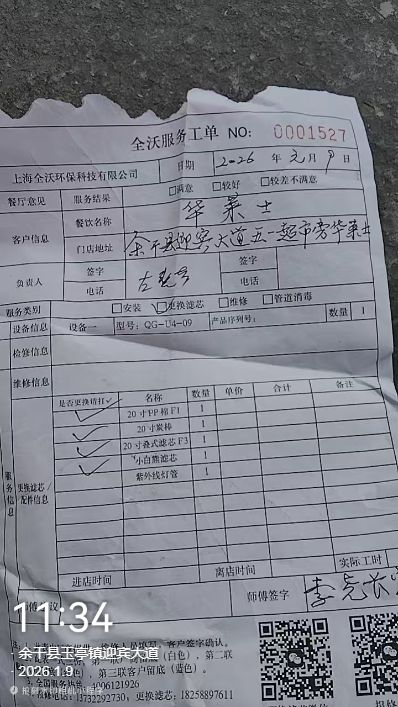 全沃服务工单 NO: 0001527
上海全沃环保科技有限公司 日期 2026 年 元 月 9 日
餐厅意见 服务结果 □满意 □较好 □较差不满意
客户信息 餐饮名称 华莱士
门店地址 余干县迎宾大道五一超市旁华莱士
负责人 签字 签字
电话 电话
服务类别 □安装 ☑更换滤芯 □维修 □管道消毒
设备信息 设备一 型号：QG-U4-09 产品序列号： 数量 1
检修信息
维修信息
服务信息 更换滤芯/配件信息
是否更换请打✓ 名称 数量 单价 合计 备注
✓ 20寸PP棉F1 1
✓ 20寸炭棒 1
✓ 20寸叠式滤芯F3 1
✓ 小白熊滤芯 1
紫外线灯管 1
进店时间 离店时间 实际工时
师傅签字
客户签字确认。
（白色）、第二联
第三联客户留底（蓝色）。
13732292730，更换滤芯：18258897611
11:34
余干县玉亭镇迎宾大道
2026.1.9